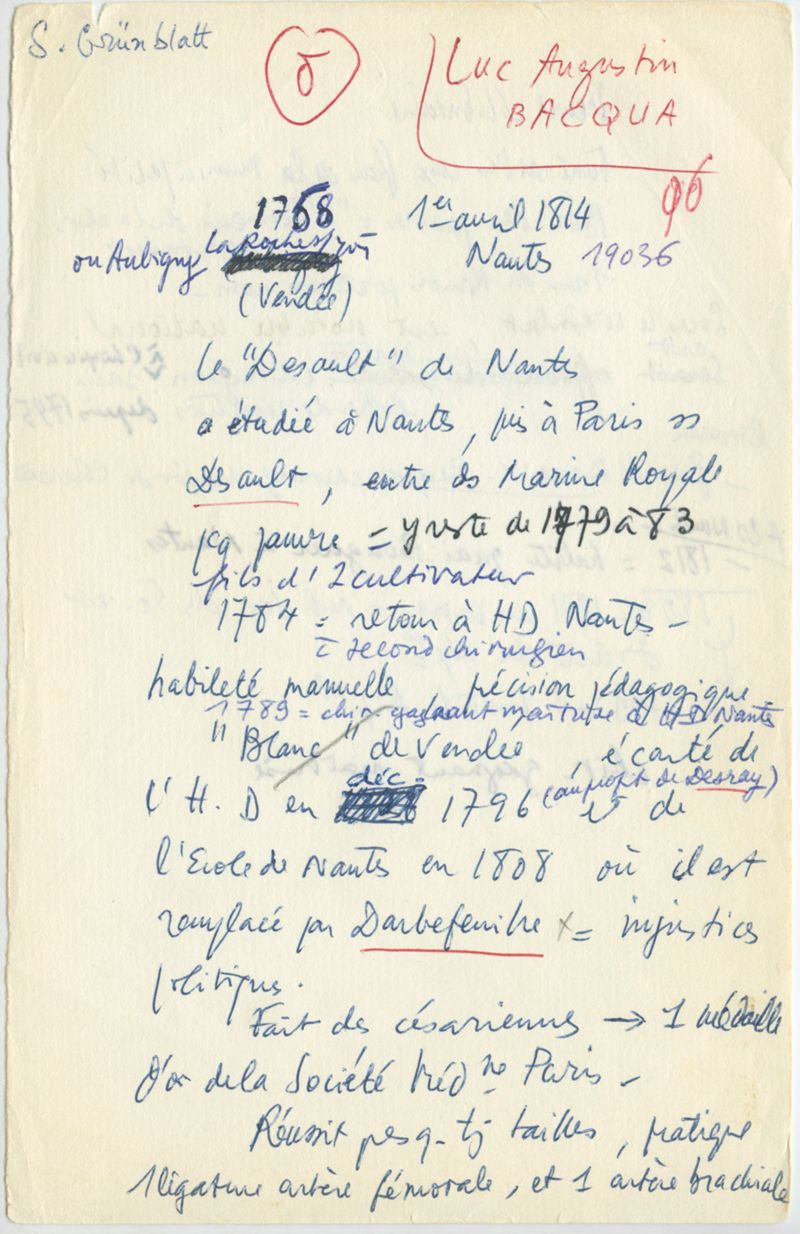 S. Grünblatt
δ
Luc Augustin
BACQUA
96
1758 1er avril 1814
ou Aubigny La Roche s/yon Nantes 19036
(Vendée)
Le "Desault" de Nantes
a étudié à Nantes, puis à Paris
Desault, entre ds Marine Royale
pcq pauvre = y reste de 1779 à 83
fils d'1 cultivateur
1784 = retour à HD Nantes -
second chirurgien
habileté manuelle, précision pédagogique
1789 = chir. gagnant maîtrise à HD Nantes
"Blanc" de Vendée écarté de
déc. (au profit de Desray)
l'H.D en 1796 et de
l'Ecole de Nantes en 1808 où il est
remplacé par Darbefeuille x = injustices
politiques.
Fait des césariennes → 1 médaille
d'or de la Société Méd. Paris -
Réussit presq. tj tailles, pratique
1 ligature artère fémorale, et 1 artère brachiale